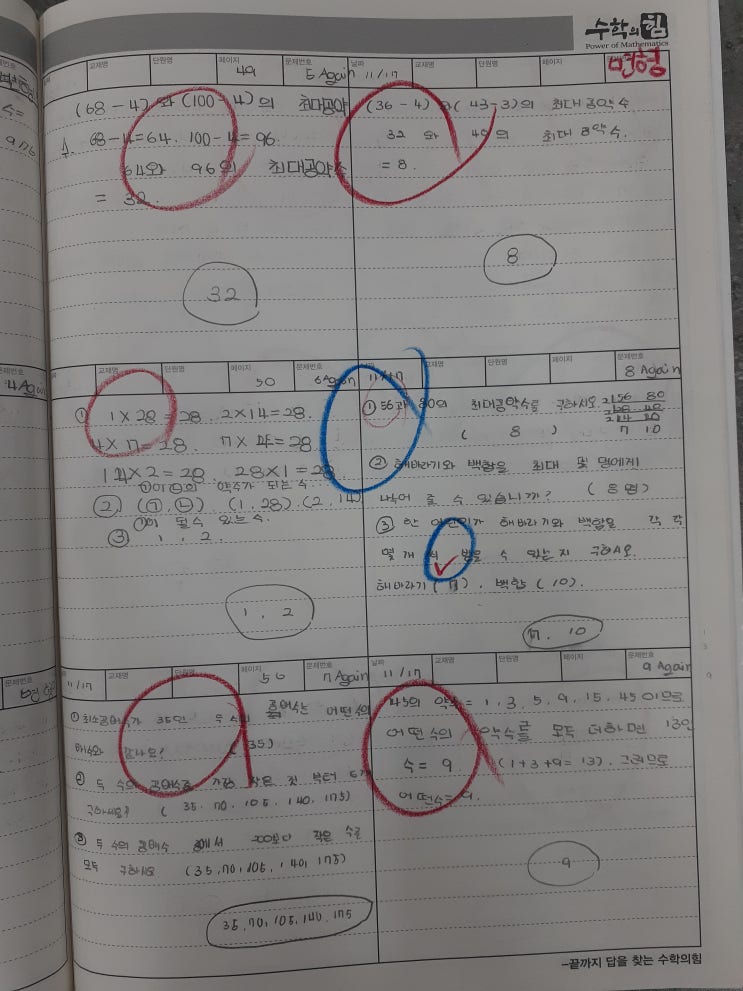 수학의힘
Power of Mathematics
민형
교재명 단원명 페이지 49 문제번호 5 Again
날짜 11/17 교재명 단원명 페이지
(68-4)와 (100-4)의 최대공약
68-4=64. 100-4=96
64와 96의 최대공약수
= 32.
32
(36-4)와 (43-3)의 최대공약수
32 와 40의 최대공약수.
= 8.
8
4 Again
교재명 단원명 페이지 50 문제번호 6 Again
① 1×28=28 2×14=28.
4×7=28. 7×4=28
14×2=28 28×1=28
①이 ①의 약수가 되는 수
② (㉠, ㉡) (1, 28). (2, 14)
①이 될수 있는 수.
③ 1, 2
1, 2
11/17 교재명 단원명 페이지 문제번호 8 Again
① 56과 80의 최대공약수를 구하시오 2)56 80
2)28 40
2)14 20
7 10
( 8 )
② 해바라기와 백합을 최대 몇 명에게
나누어 줄 수 있습니까? (8명)
③ 한 어린이가 해바라기와 백합을 각각
몇 개씩 받을 수 있는지 구하시오
해바라기 (7). 백합 (10).
7. 10
11/17 교재명 단원명 페이지 50 문제번호 7 Again
① 최소공배수가 35인 두 수의 공배수는 어떤수의
배수와 같나요? (35)
② 두 수의 공배수를 가장 작은 것 부터 5개
구하세요? (35. 70. 105. 140. 175)
③ 두 수의 공배수 중에서 200보다 작은 수를
모두 구하시오 (35, 70, 105, 140, 175)
35. 70, 105, 140, 175
날짜 11/17 교재명 단원명 페이지 문제번호 9 Again
45의 약수 = 1, 3, 5, 9, 15, 45 이므로
어떤수의 약수를 모두 더하면 13인
수 = 9 (1+3+9=13). 그러므로
어떤수=9.
9
–끝까지 답을 찾는 수학의힘